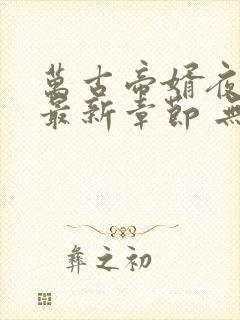 萬古帝婿夜
最新章節 無
彝之初